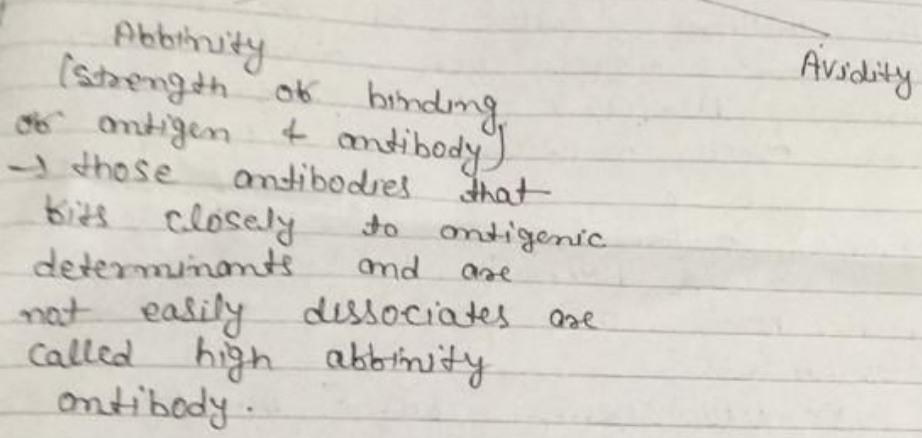 Affinity
Avidity
(strength of binding
of antigen & antibody)
→ those antibodies that
fits closely to antigenic
determinants and are
not easily dissociates are
called high affinity
antibody.